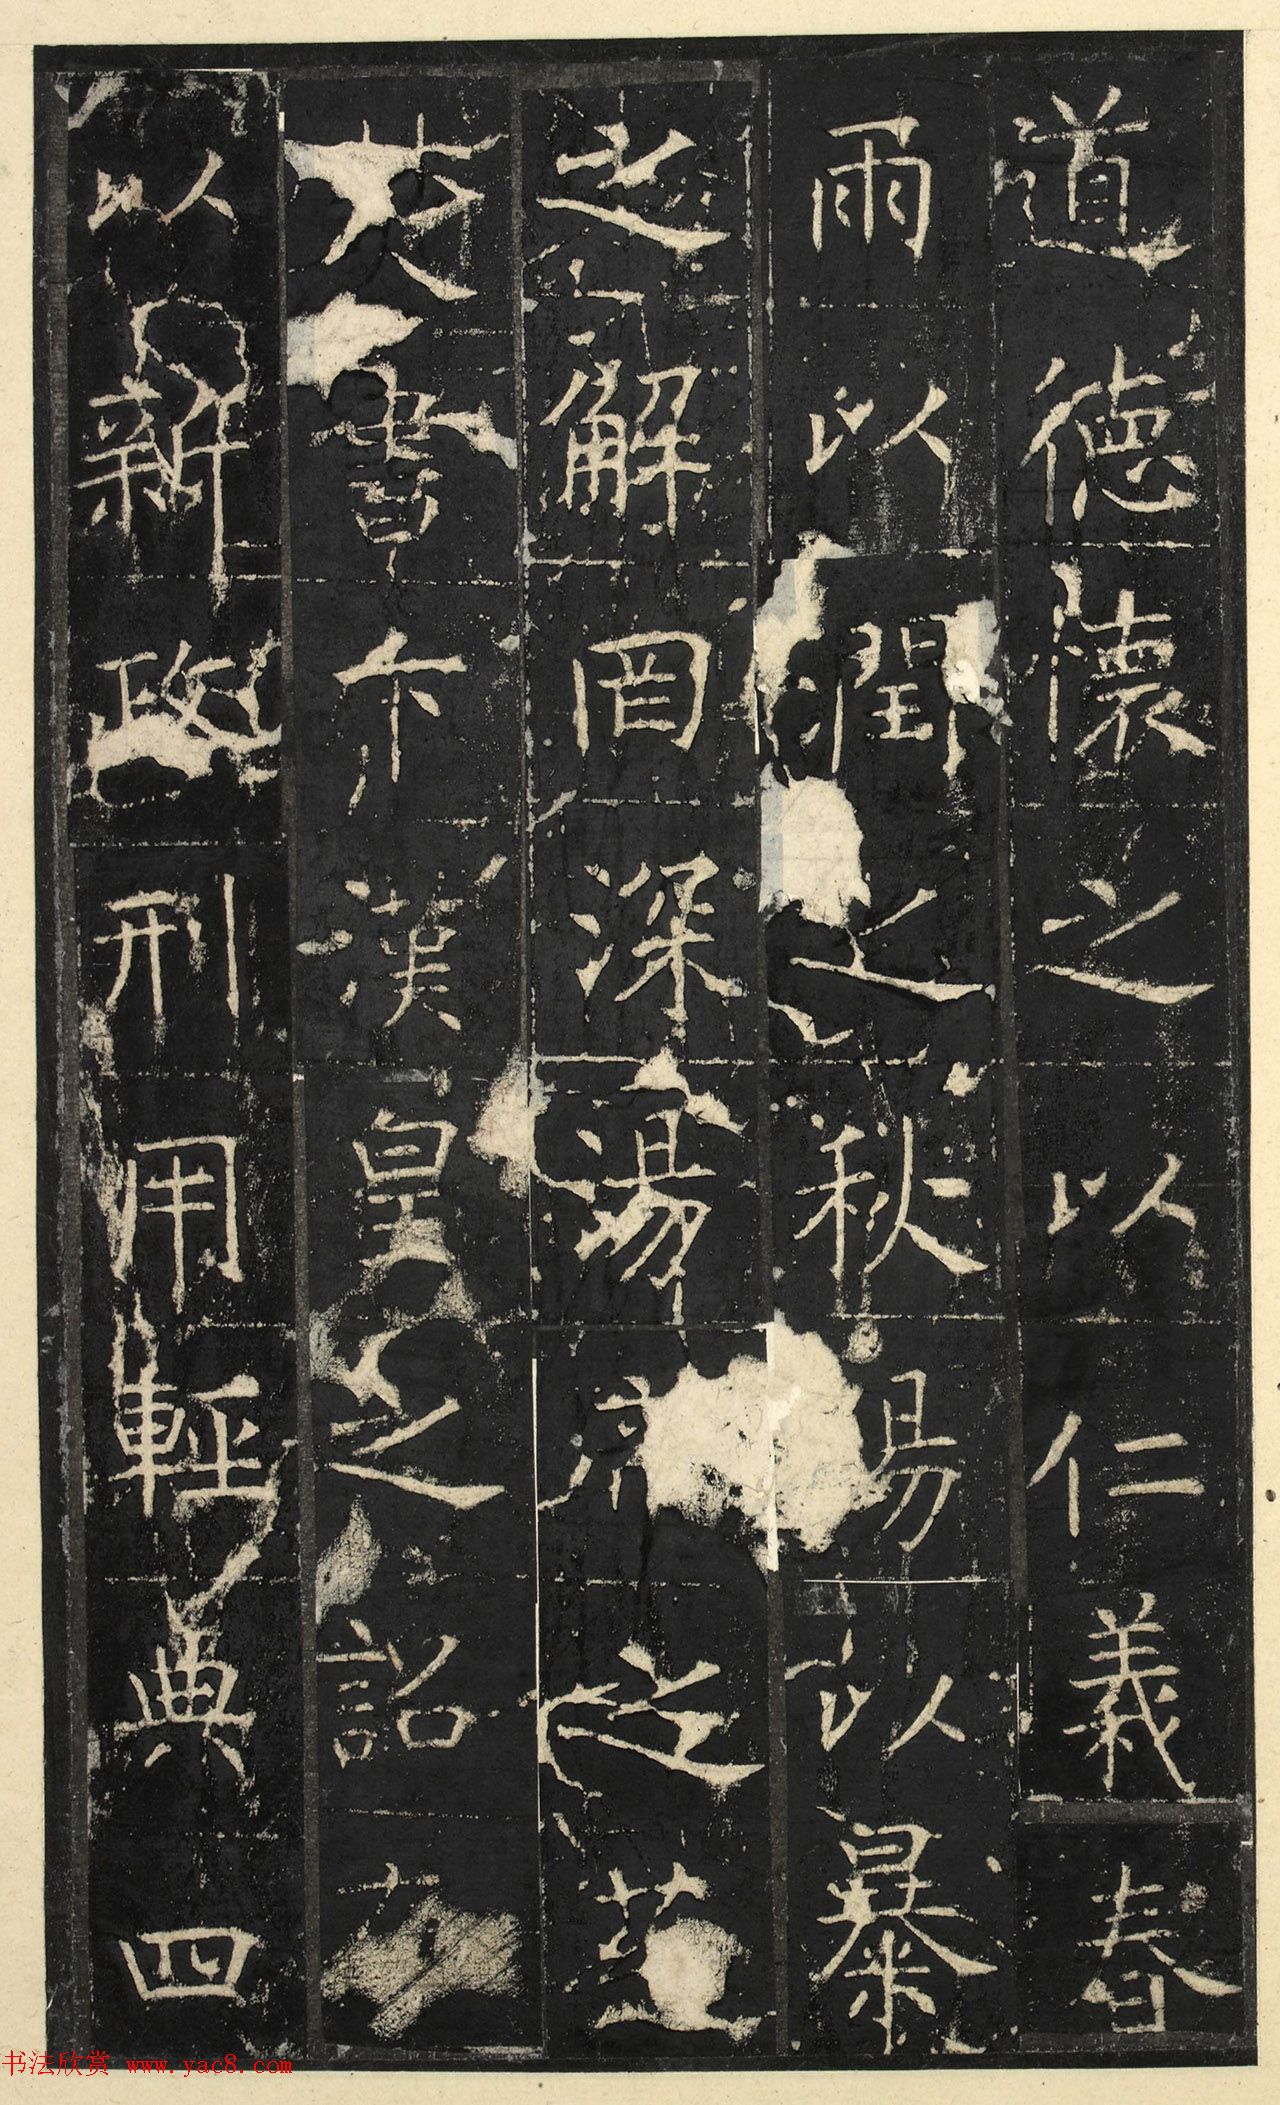 道德懷之以仁義春
雨以潤之秋陽以暴
之解罔深湯之
焚書漢皇之詔
以新政刑用輕典四
书法欣赏 www.yac8.com